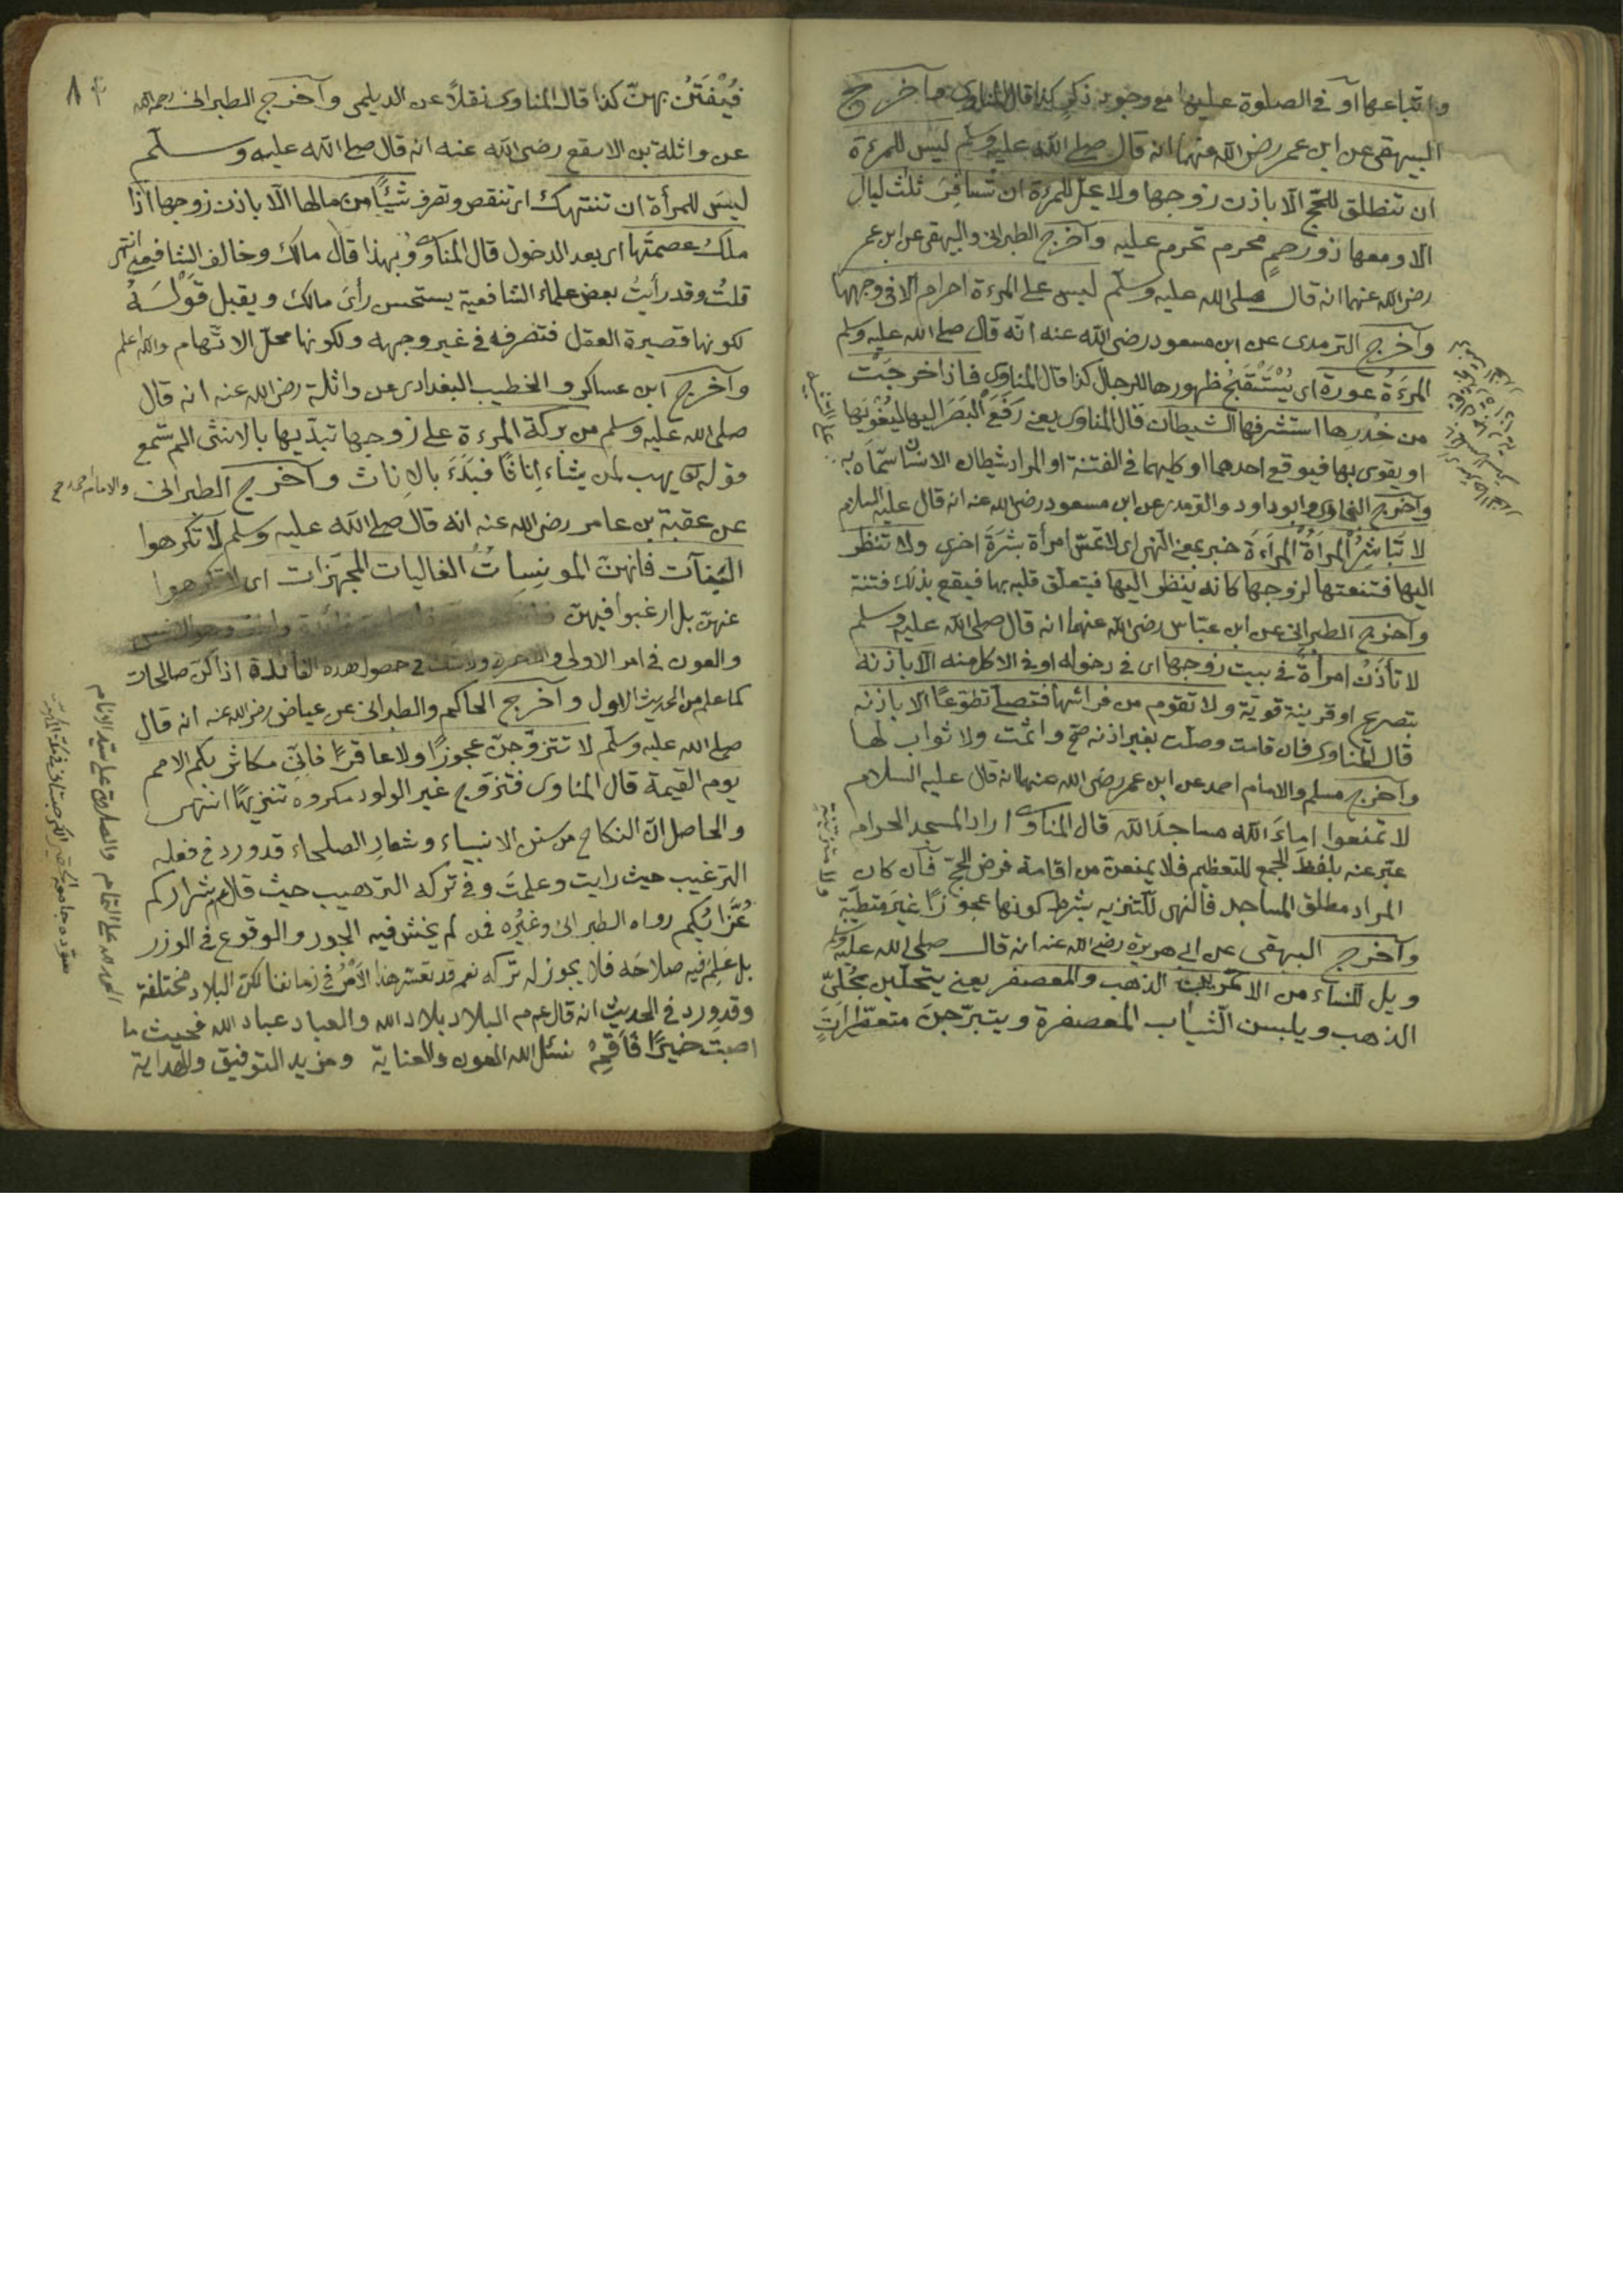 واتباعها او في الصلوة عليها مع وجود ذكر كذا قال المناوى وآخرج
البيهقى عن ابن عمر رضى الله عنهما انه قال صلى الله عليه وسلم ليس للمرءة
ان تنطلق للحج الا باذن زوجها ولا يحل للمرءة ان تسافر ثلث ليال
الا ومعها ذو رحم محرم تحرم عليه وآخرج الطبرانى والبيهقى عن ابن عمر
رضى الله عنهما انه قال صلى الله عليه وسلم ليس على المرءة احرام الا فى وجهها
وآخرج الترمدى عن ابن مسعود رضى الله عنه انه قال صلى الله عليه وسلم
المرءة عورة اى يستقبح ظهورها للرجال كذا قال المناوى فاذا خرجت
من خدرها استشرفها الشيطان قال المناوى يعنى رفع البصر اليها ليغويها
او يغوى بها فيوقع احدهما او كليهما فى الفتنة او المراد شيطان الانس سماه به
وآخرج البخارى وابو داود والترمدى عن ابن مسعود رضى الله عنه انه قال عليه السلام
لا تباشر المرأة المرأة خبر بمعنى النهى اى لا تمس امرأة بشرة اخرى ولا تنظر
اليها فتنعتها لزوجها كانه ينظر اليها فيتعلق قلبه بها فيقع بذلك فتنة
وآخرج الطبرانى عن ابن عباس رضى الله عنهما انه قال صلى الله عليه وسلم
لا تأذن امرأة فى بيت زوجها اى فى دخوله او فى الاكل منه الا باذنه
بتصريح او قرينة قوية ولا تقوم من فراشها فتصلى تطوعا الا باذنه
قال المناوى فان قامت وصلت بغير اذنه صح واثمت ولا ثواب لها
وآخرج مسلم والامام احمد عن ابن عمر رضى الله عنهما انه قال عليه السلام
لا تمنعوا اماء الله مساجد الله قال المناوى اراد المسجد الحرام
عبر عنه بلفظ الجمع للتعظيم فلا يمنعن من اقامة فرض الحج فان كان
المراد مطلق المساجد فالنهى للتنزيه بشرط كونها عجوزا غير متطيبة
ولا متزينة
وآخرج البيهقى عن ابى هريرة رضى الله عنه انه قال صلى الله عليه وسلم
ويل للنساء من الاحمرين الذهب والمعصفر يعنى يتحلين بحلى
الذهب ويلبسن الثياب المعصفرة ويتبرجن متعطرات
فيفتن بهن كذا قال المناوى نقلا عن الديلمى وآخرج الطبرانى رحمه الله
عن واثلة بن الاسقع رضى الله عنه انه قال صلى الله عليه وسلم
ليس للمرأة ان تنتهك اى تنقص وتصرف شيئا من مالها الا باذن زوجها اذا
ملك عصمتها اى بعد الدخول قال المناوى وبهذا قال مالك وخالف الشافعى انتهى
قلت وقد رأيت بعض علماء الشافعية يستحسن رأى مالك ويقبل قوله
لكونها قصيرة العقل فتصرفه فى غير وجهه ولكونها محل الاتهام والله اعلم
وآخرج ابن عساكر والخطيب البغدادى عن واثلة رضى الله عنه انه قال
صلى الله عليه وسلم من بركة المرءة على زوجها تبديها بالانثى الم تسمع
قوله تعالى يهب لمن يشاء اناثا فبدء بالاناث وآخرج الطبرانى والامام احمد
عن عقبة بن عامر رضى الله عنه انه قال صلى الله عليه وسلم لا تكرهوا
البنات فانهن المونسات الغاليات المجهزات اى لا تكرهوا
عنهن بل ارغبوا فيهن
والعون فى امر الاولى والاخرى ولا شك فى حصول هذه الفائدة اذا كن صالحات
كما علم من الحديث الاول وآخرج الحاكم والطبرانى عن عياض رضى الله عنه انه قال
صلى الله عليه وسلم لا تتزوجن عجوزا ولا عاقرا فانى مكاثر بكم الامم
يوم القيمة قال المناوى فتزوج غير الولود مكروه تنزيها انتهى
والحاصل ان النكاح من سنن الانبياء وشعار الصلحاء قد ورد فى فعله
الترغيب حيث رايت وعلمت وفى تركه الترهيب حيث قال عم شراركم
عزابكم رواه الطبرانى وغيره فمن لم يخش فيه الجور والوقوع فى الوزر
بل علم فيه صلاحه فلا يجوز له تركه نعم قد تعسر هذا الامر فى زماننا لكن البلاد مختلفة
وقد ورد فى الحديث انه قال عم م البلاد بلاد الله والعباد عباد الله فحيث ما
اصبت خيرا فاقم نسئل الله العون والعناية ومزيد التوفيق والهداية
الحمد لله على التمام والصلوة على سيد الانام